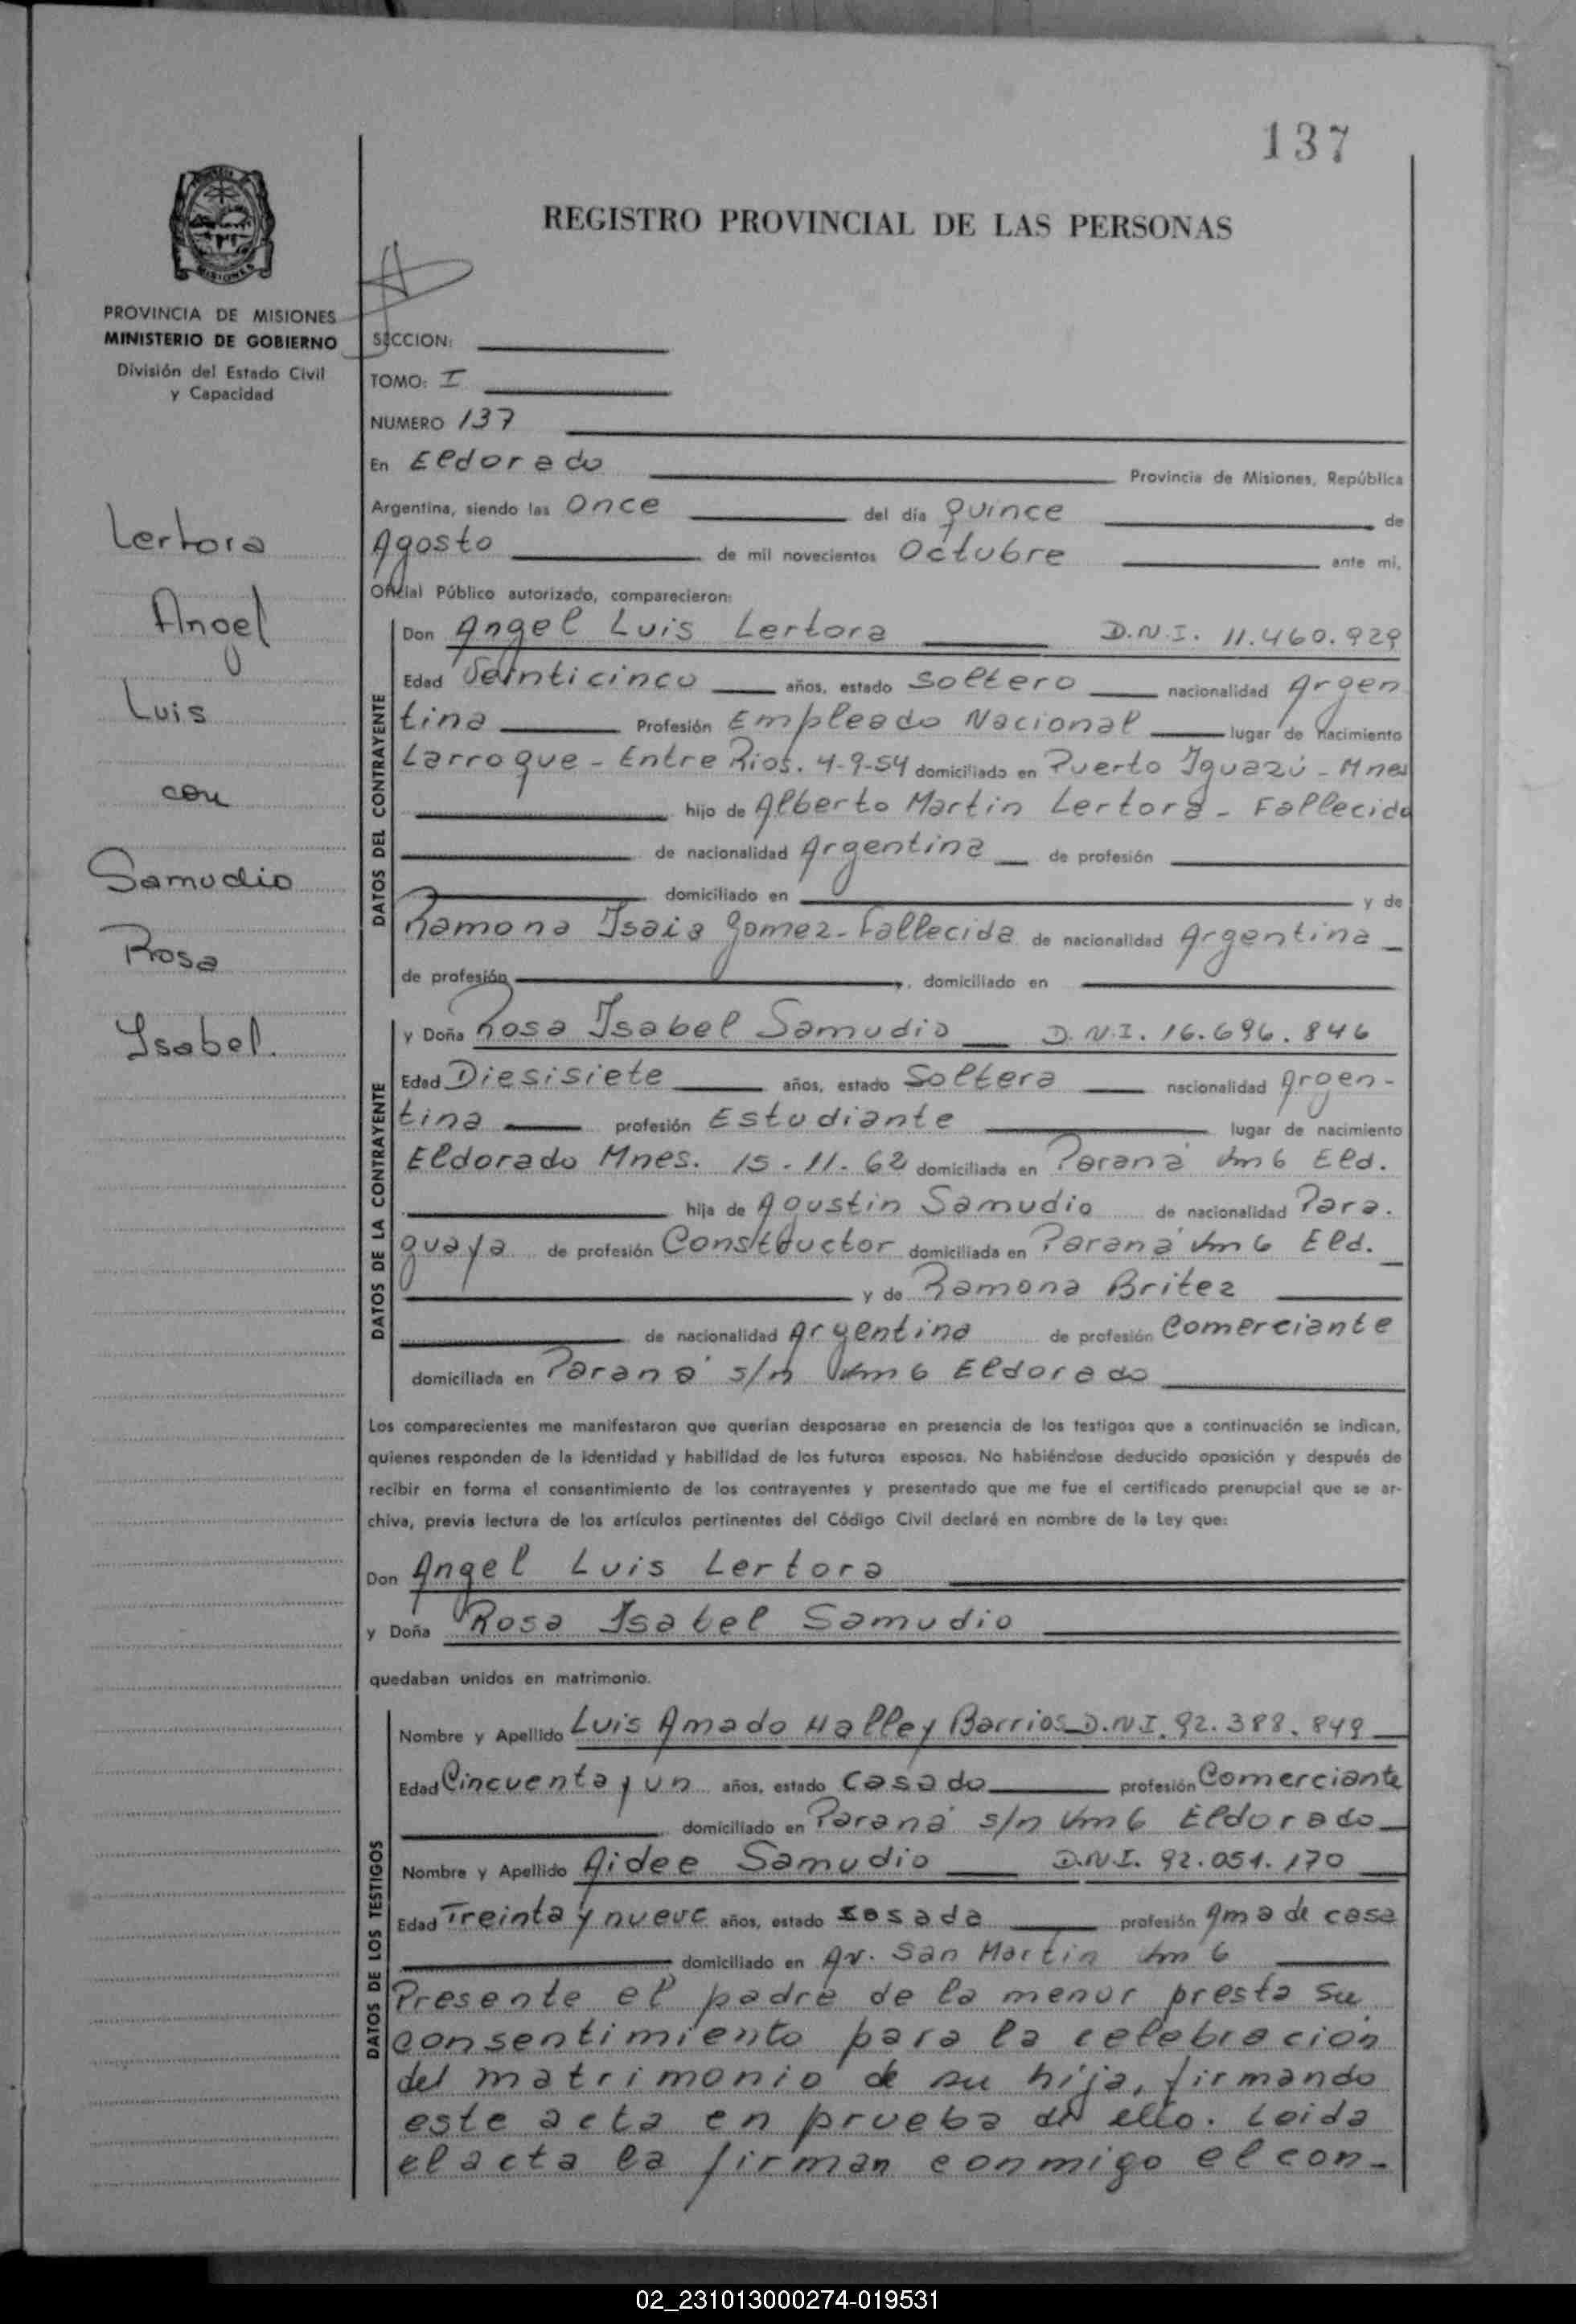 137
REGISTRO PROVINCIAL DE LAS PERSONAS
MISIONES
PROVINCIA DE MISIONES
MINISTERIO DE GOBIERNO
División del Estado Civil
y Capacidad
Lertora
Angel
Luis
con
Samudio
Rosa
Isabel.
SECCION:
TOMO: I
NUMERO 137
En Eldorado Provincia de Misiones, República
Argentina, siendo las Once del día quince de
Agosto de mil novecientos Octubre ante mi,
Oficial Público autorizado, comparecieron:
DATOS DEL CONTRAYENTE
Don Angel Luis Lertora D.N.I. 11.460.929
Edad Veinticinco años, estado Soltero nacionalidad Argen
tina Profesión Empleado Nacional lugar de nacimiento
Larroque - Entre Rios. 4-9-54 domiciliado en Puerto Iguazú - Mnes
hijo de Alberto Martin Lertora - Fallecido
de nacionalidad Argentina de profesión
domiciliado en y de
Ramona Isaia Gomez - Fallecida de nacionalidad Argentina
de profesión , domiciliado en
DATOS DE LA CONTRAYENTE
y Doña Rosa Isabel Samudio D.N.I. 16.696.846
Edad Diesisiete años, estado Soltera nacionalidad Argen-
tina profesión Estudiante lugar de nacimiento
Eldorado Mnes. 15-11-62 domiciliada en Paraná km 6 Eld.
hija de Agustin Samudio de nacionalidad Para.
guaya de profesión Constructor domiciliada en Paraná km 6 Eld.
y de Ramona Britez
de nacionalidad Argentina de profesión Comerciante
domiciliada en Paraná s/n km 6 Eldorado
Los comparecientes me manifestaron que querían desposarse en presencia de los testigos que a continuación se indican,
quienes responden de la identidad y habilidad de los futuros esposos. No habiéndose deducido oposición y después de
recibir en forma el consentimiento de los contrayentes y presentado que me fue el certificado prenupcial que se ar-
chiva, previa lectura de los artículos pertinentes del Código Civil declaré en nombre de la Ley que:
Don Angel Luis Lertora
y Doña Rosa Isabel Samudio
quedaban unidos en matrimonio.
DATOS DE LOS TESTIGOS
Nombre y Apellido Luis Amado Halley Barrios D.N.I. 92.388.849
Edad Cincuenta y un años, estado Casado profesión Comerciante
domiciliado en Paraná s/n km 6 Eldorado
Nombre y Apellido Aidee Samudio D.N.I. 92.051.170
Edad Treinta y nueve años, estado casada profesión Ama de casa
domiciliado en Av. San Martin km 6
Presente el padre de la menor presta su
consentimiento para la celebración
del matrimonio de su hija, firmando
este acta en prueba de ello. Leida
el acta la firman conmigo el con-
02_231013000274-019531